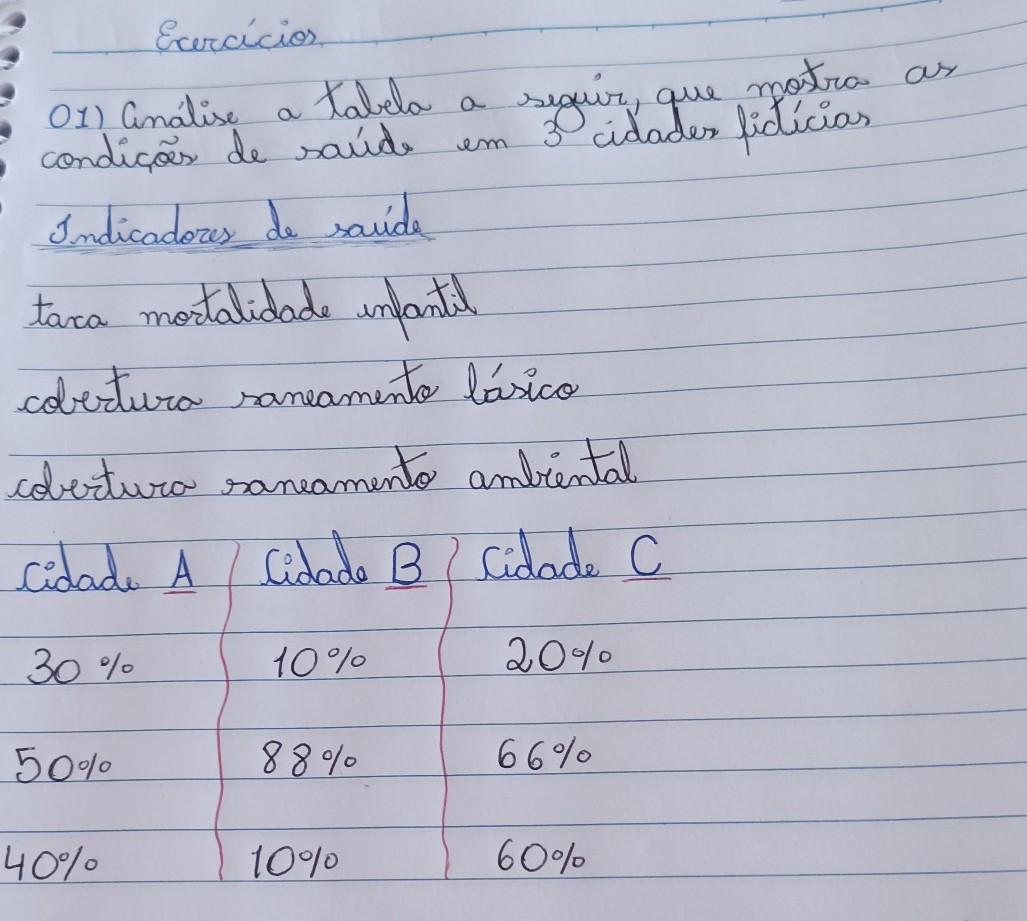 Exercícios
01) Análise a tabela a seguir, que mostra as
condições de saúde em 3 cidades fictícias
Indicadores de saúde
taxa mortalidade infantil
cobertura saneamento básico
cobertura saneamento ambiental
Cidade A Cidade B Cidade C
30% 10% 20%
50% 88% 66%
40% 10% 60%